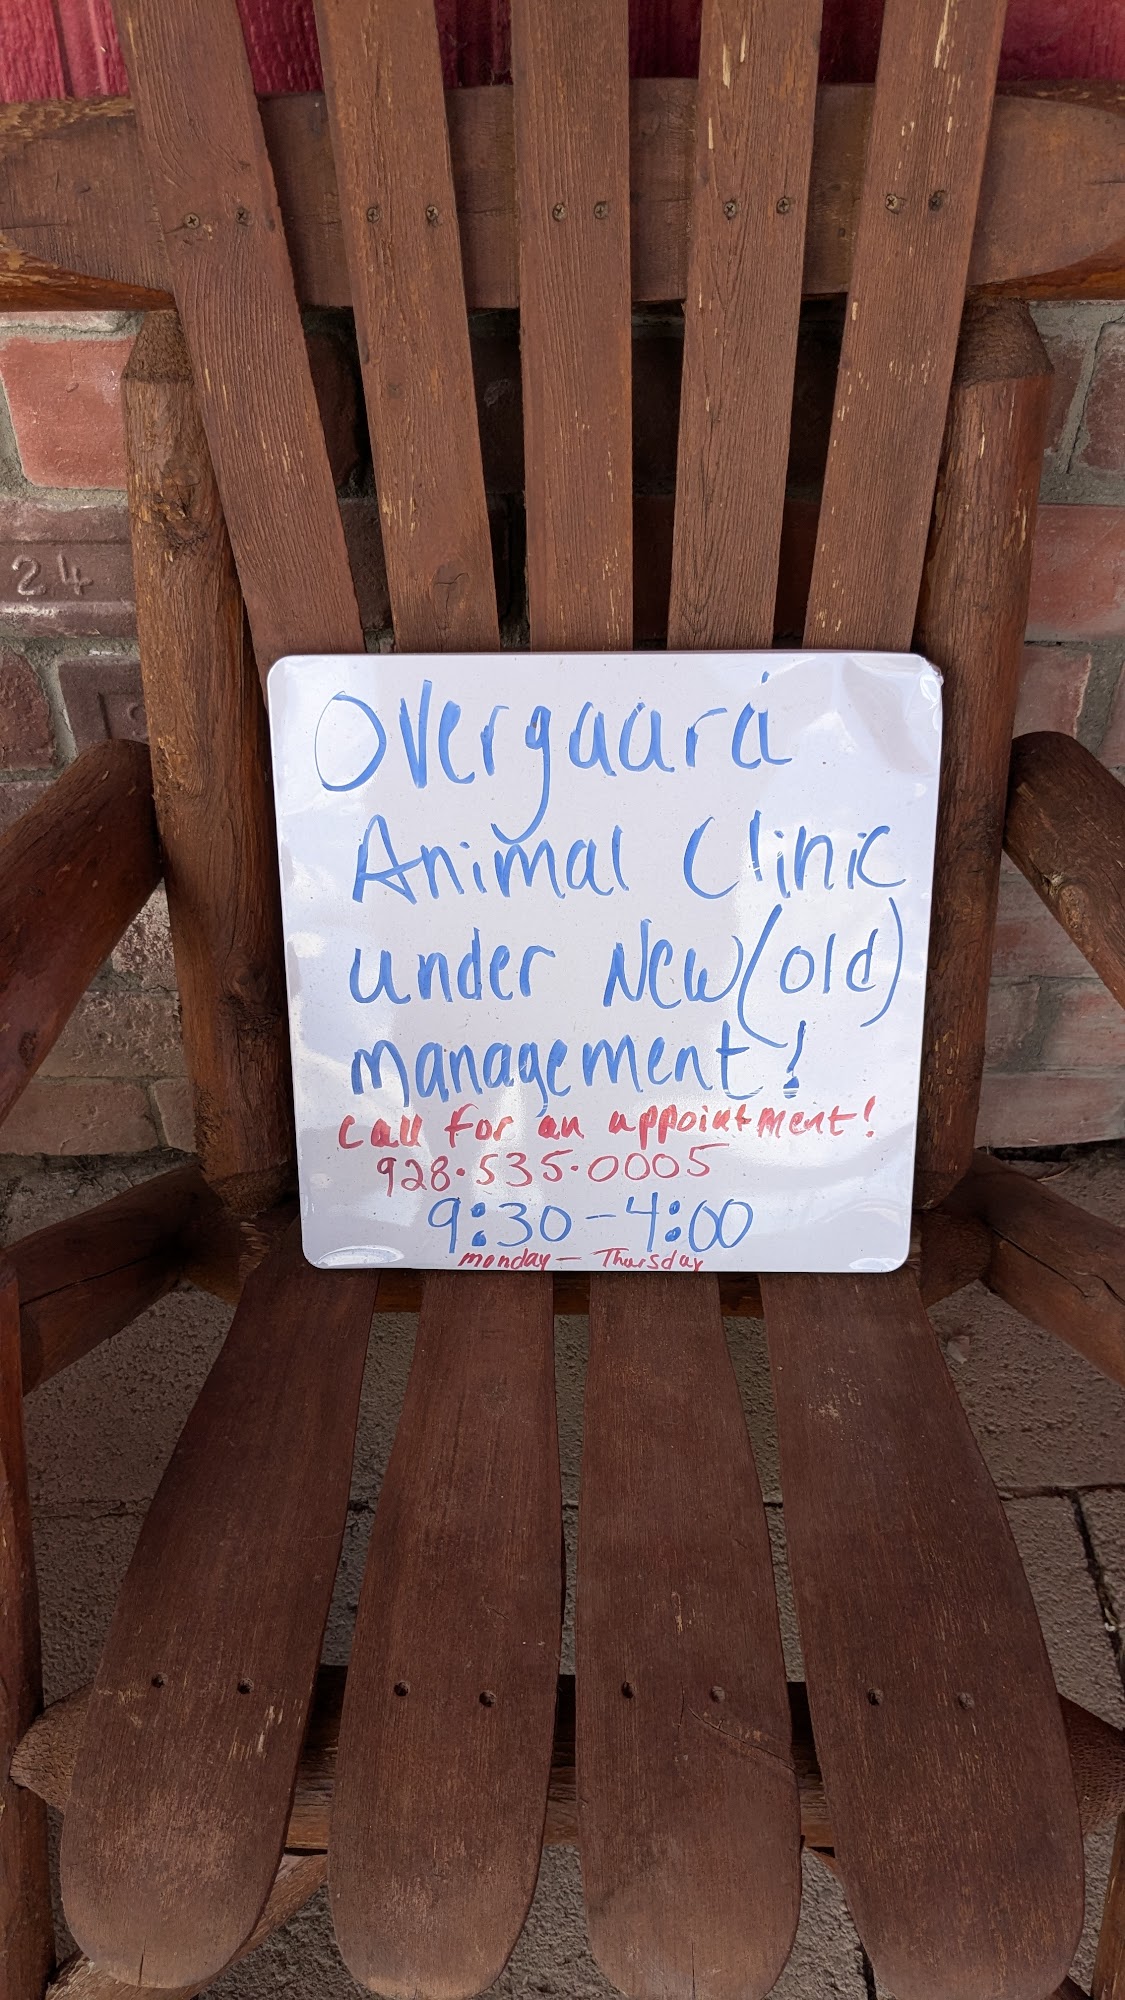 24
Overgaard
Animal Clinic
under New (old)
management!
Call for an appointment!
928.535.0005
9:30-4:00
monday - Thursday